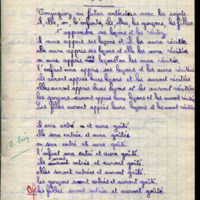 Conjuguer au futur antérieur avec les sujets
il, elle, on, l'enfant, ils, elles, les garçons, les filles
apprendre ses leçons et les réciter.
Il aura appris ses leçons et les aura récitées
elle aura appris ses leçons et les aura récitées
on aura appris ses leçons et les aura récitées
l'enfant aura appris ses leçons et les aura récitées
ils auront appris leurs leçons et les auront récitées
elles auront appris leurs leçons et les auront récitées
les garçons auront appris leurs leçons et les auront
Les filles auront appris leurs leçons et les auront
Il sera entré et aura goûté
elle sera entrée et aura goûté
on sera entré et aura goûté
l'enfant sera entré et aura goûté
ils seront entrés et auront goûté
elles seront entrées et auront goûté.
les garçons seront entrés et auront goûté
les filles seront entrées et auront goûté.